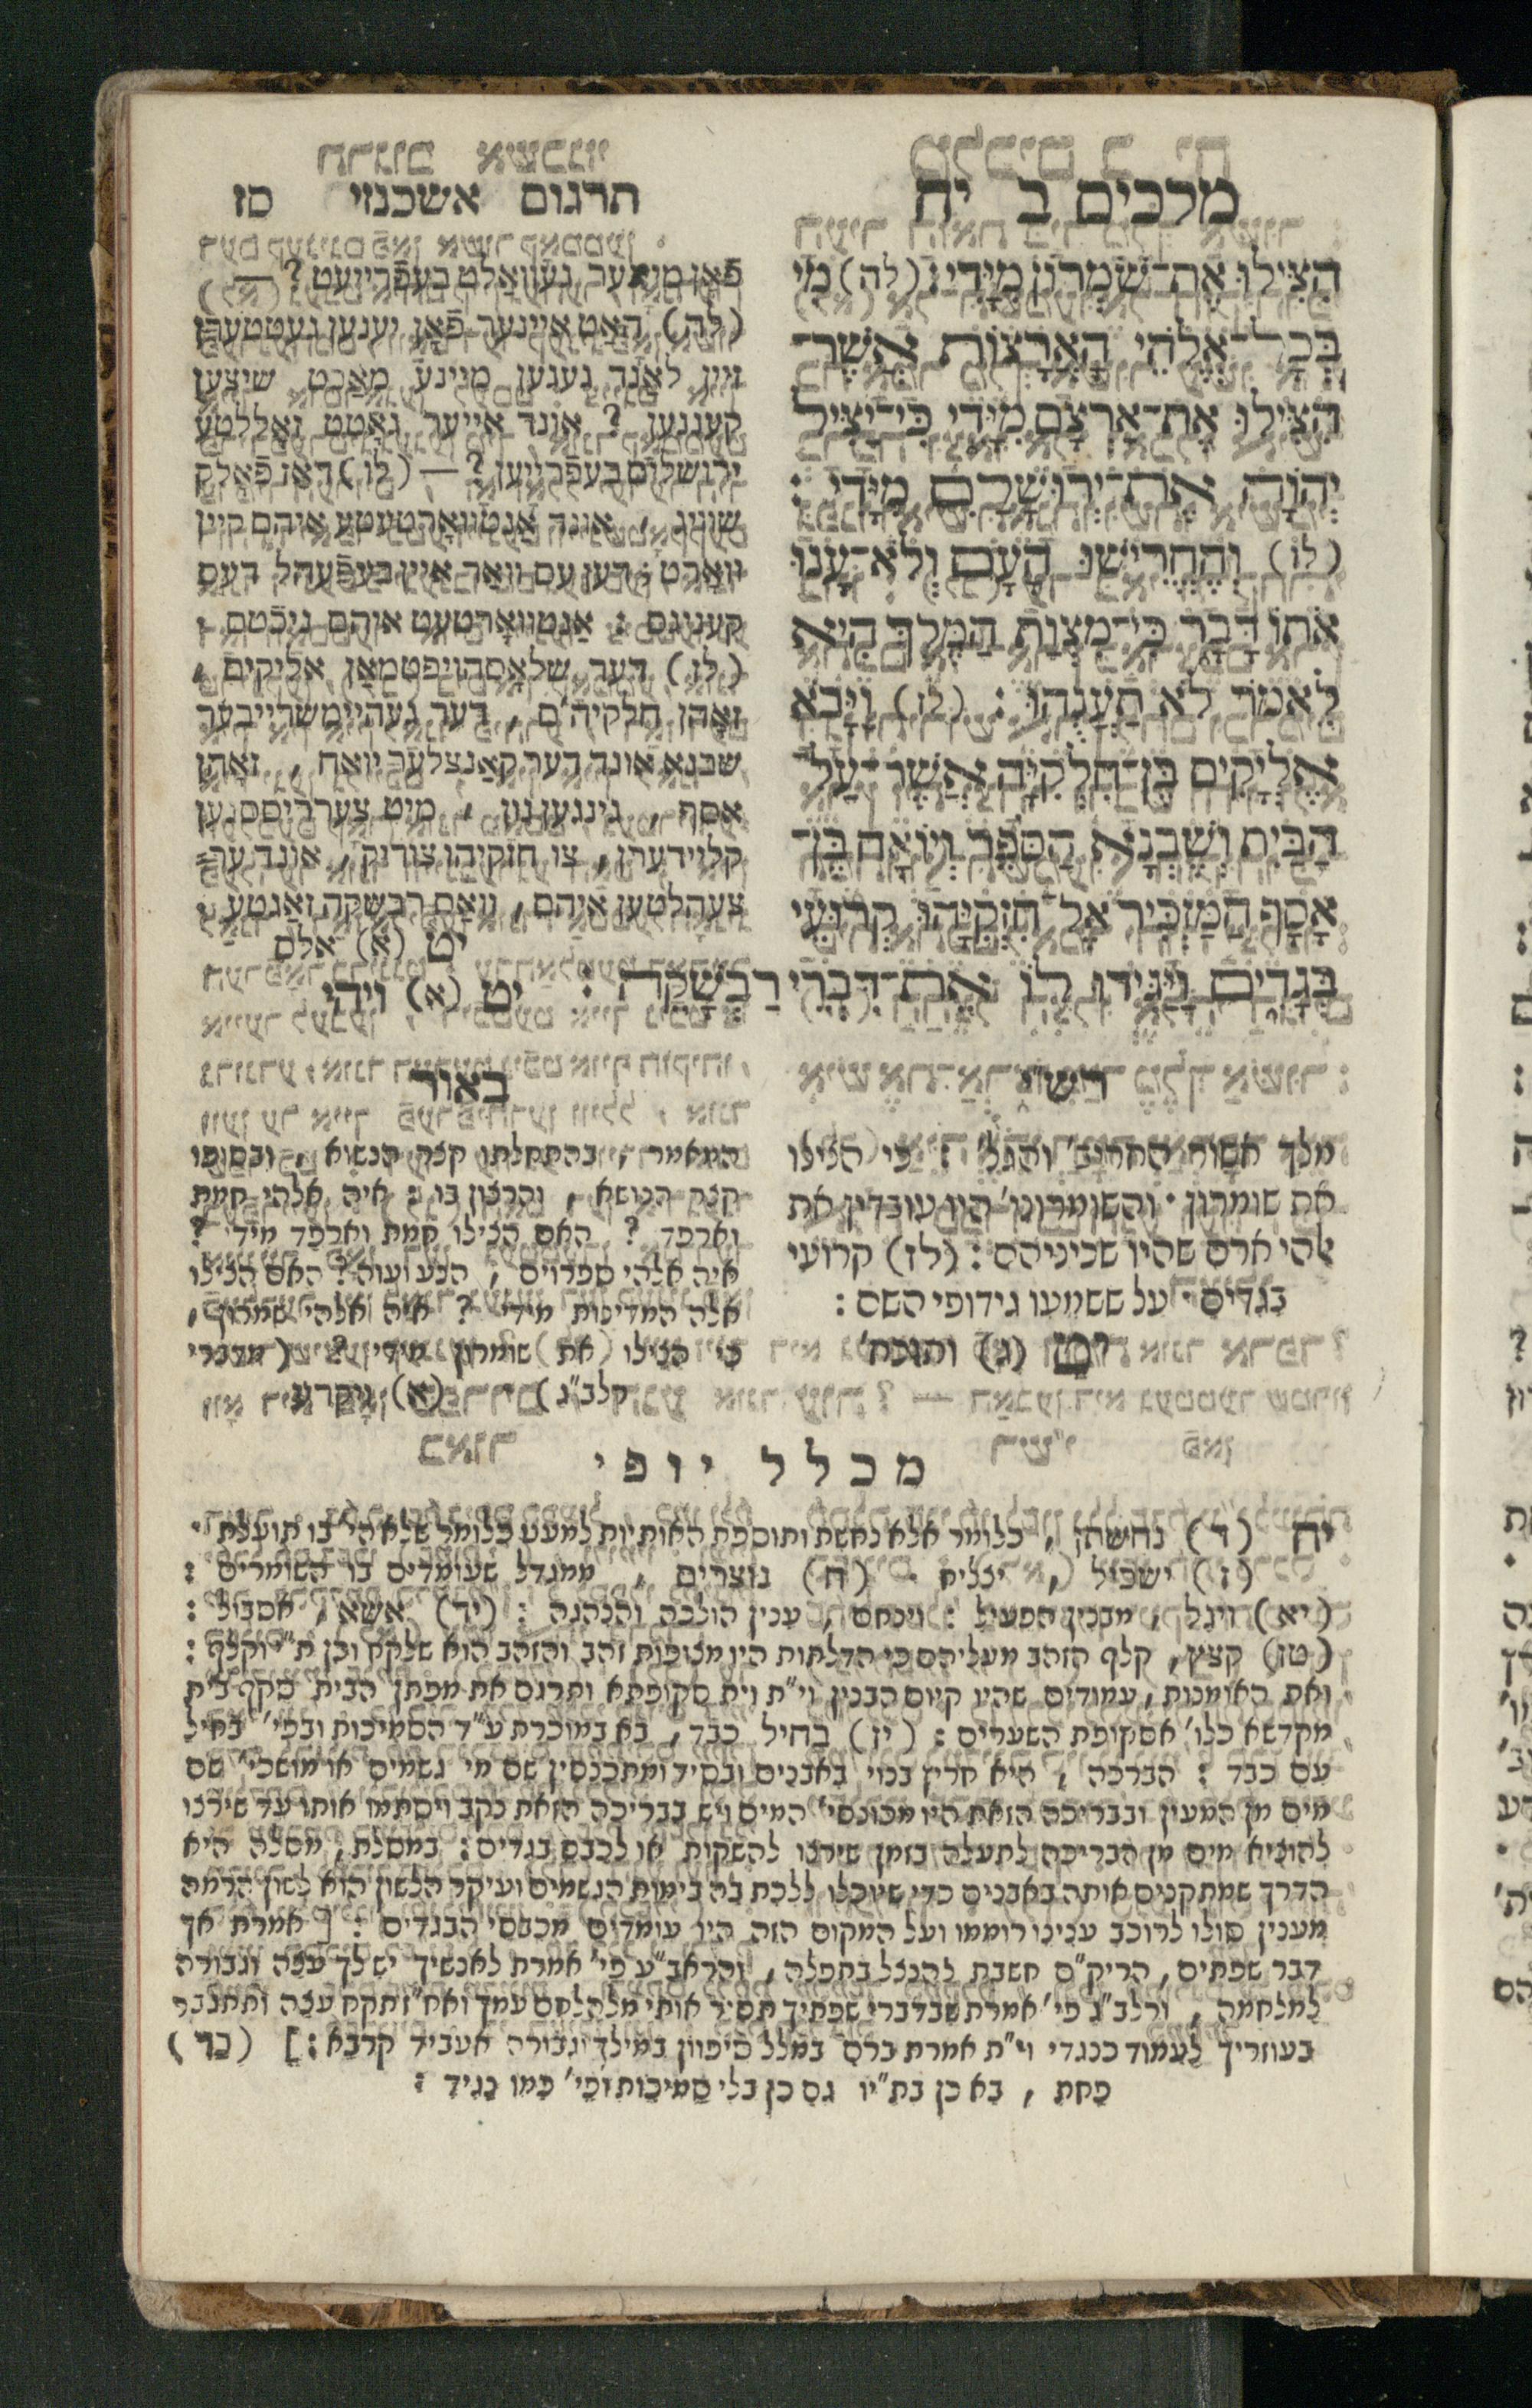 מלכים ב יח
הִצִּילוּ אֶת־שֹׁמְרוֹן מִיָּדִי: (לה) מִי
בְּכָל־אֱלֹהֵי הָאֲרָצוֹת אֲשֶׁר־
הִצִּילוּ אֶת־אַרְצָם מִיָּדִי כִּי־יַצִּיל
יְהוָֹה אֶת־יְרוּשָׁלִַם מִיָּדִי:
(לו) וְהֶחֱרִישׁוּ הָעָם וְלֹא־עָנוּ
אֹתוֹ דָּבָר כִּי־מִצְוַת הַמֶּלֶךְ הִיא
לֵאמֹר לֹא תַעֲנֻהוּ: (לז) וַיָּבֹא
אֶלְיָקִים בֶּן־חִלְקִיָּה אֲשֶׁר־עַל־
הַבַּיִת וְשֶׁבְנָא הַסֹּפֵר וְיוֹאָח בֶּן־
אָסָף הַמַּזְכִּיר אֶל־חִזְקִיָּהוּ קְרוּעֵי
בְּגָדִים וַיַּגִּידוּ לוֹ אֶת־דִּבְרֵי רַבְשָׁקֵה: יט (א) ויהי
תרגום אשכנזי סז
פֿאָן מיינער געוואַלט בעפֿרייעט? —
(לה) האָט איינער פֿאָן יענען געטטערן
זיין לאַנד געגען מיינע מאַכט שיצען
קעננען? אונד אייער גאָטט זאָללטע
ירושלום בעפֿרייען? — (לו) דאז פֿאָלק
שוויג, אונד אַנטוואָרטעטע איהם קיין
וואָרט; דען עס וואַר איין בעפֿעהל דעס
קעניגס: אַנטוואָרטעט איהם ניכֿטס.
(לז) דער שלאָסהויפטמאַן אליקים,
זאָהן חלקיה'ס, דער געהיימשרייבער
שבנא אונד דער קאַנצלער יואח, זאָהן
אסף, גינגען נון, מיט צערריססנען
קליידערן, צו חזקיהו צוריק, אונד ער־
צעהלטען איהם, וואָס רבשקה זאַגטע.
יט (א) אלס
רש"י
מלך אשור החריב' והגל': כי הצילו
את שומרון. והשומרוני' היו עובדין את
אלהי ארם שהיו שכיניהם: (לז) קרועי
בגדים. על ששמעו גידופי השם:
יט (ג) ותוכח'
באור
המאמר, בהתחלתו קצר הנשוא, ובסופו
קצר הנושא, והרצון בו: איה אלהי חמת
וארפד? האם הצילו חמת וארפד מידי?
איה אלהי ספרוים, הנע ועוה? האם הצילו
אלה המדינות מידי? איה אלהי שמרון,
כי הצילו (את) שומרון מידי? (מדברי
רלב"ג) (א) ויקרע
מכלל יופי
יח (ד) נחשתן, כלומר אלא נחשת ותוספת האותיות למעט כלומר שלא הי' בו תועלת.
(ז) ישכיל, יצליח. (ח) נוצרים, ממגדל שעומדים בו השומרים:
(יא) ויגל, מבנין הפעיל: וינחם, ענין הולכה והנהגה: (יד) אשא, אסבול:
(טז) קצץ, קלף הזהב מעליהם כי הדלתות היו מצופות זהב והזהב הוא שלקח וכן ת"י וקלף:
ואת האומנות, עמודים שהיו קיום הבנין וי"ת וית סקופתא ותרגם את מפתן הבית סקף בית
מקדשא כלו' אסקופת השערים: (יז) בחיל כבד, בא במוכרת ע"ד הסמיכות ובפי' בחיל
עם כבד: הברכה, היא חריץ בנוי באבנים ובסיד ומתכנסין שם מי גשמים או מושכי' שם
מים מן המעין ובבריכה הזאת היו מכונסי' המים ויש בבריכה הזאת נקב ויסתמו אותו עד שירצו
להוציא מים מן הבריכה לתעלה בזמן שירצו להשקות או לכבס בגדים: במסלת, מסלה היא
הדרך שמתקנים אותה באבנים כדי שיוכלו ללכת בה בימות הגשמים ועיקר הלשון הוא לשון הרמה
מענין סולו לרוכב ענינו רוממו ועל המקום הזה היו עומדים מכבסי הבגדים: [אמרת אך
דבר שפתים, הריק"ם חשבת להנצל בתפלה, והראב"ע פי' אמרת לאנשיך יש לך עצה וגבורה
למלחמה, ורלב"ג פי' אמרת שבדברי שפתיך תסיר אותי מלהלחם עמך ואח"ז תקח עצה ותתגבר
בעוזריך לעמוד כנגדי וי"ת אמרת ברם במלל סיפוון במילך וגבורה אעביד קרבא:] (כד)
פחת, בא כן בת"יו גם כן בלי סמיכות ופי' כמו נגיד: